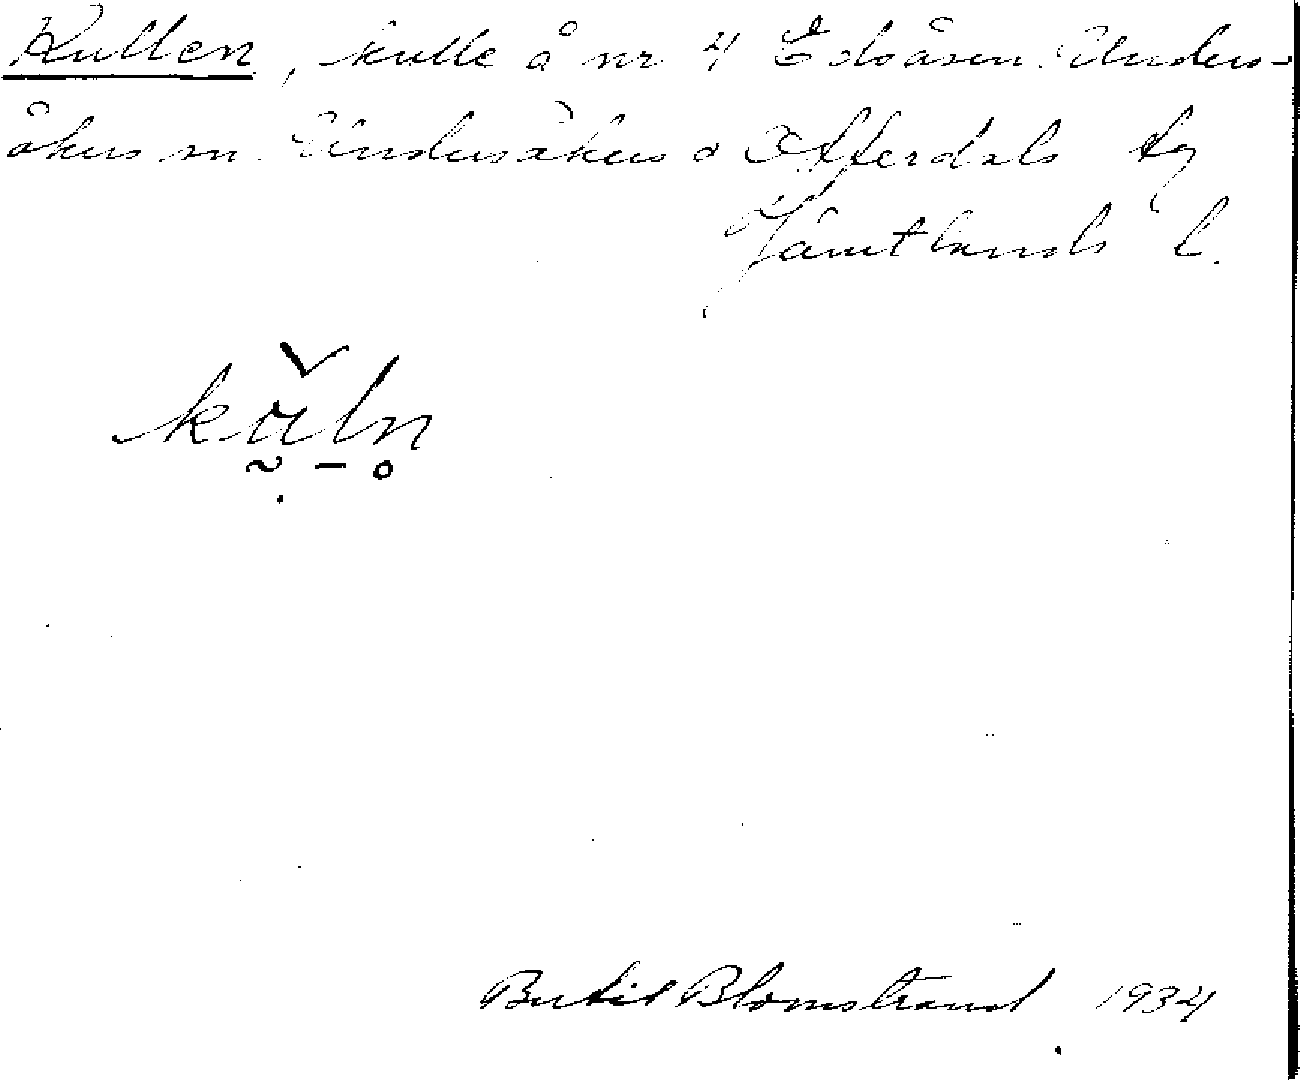 Kullen, kulle å nr 4 Edsåsen. Unders-
åkers sn. Undersåkers o Offerdals tg
Jämtlands l.
kŭln
Bertil Blomstrand 1934